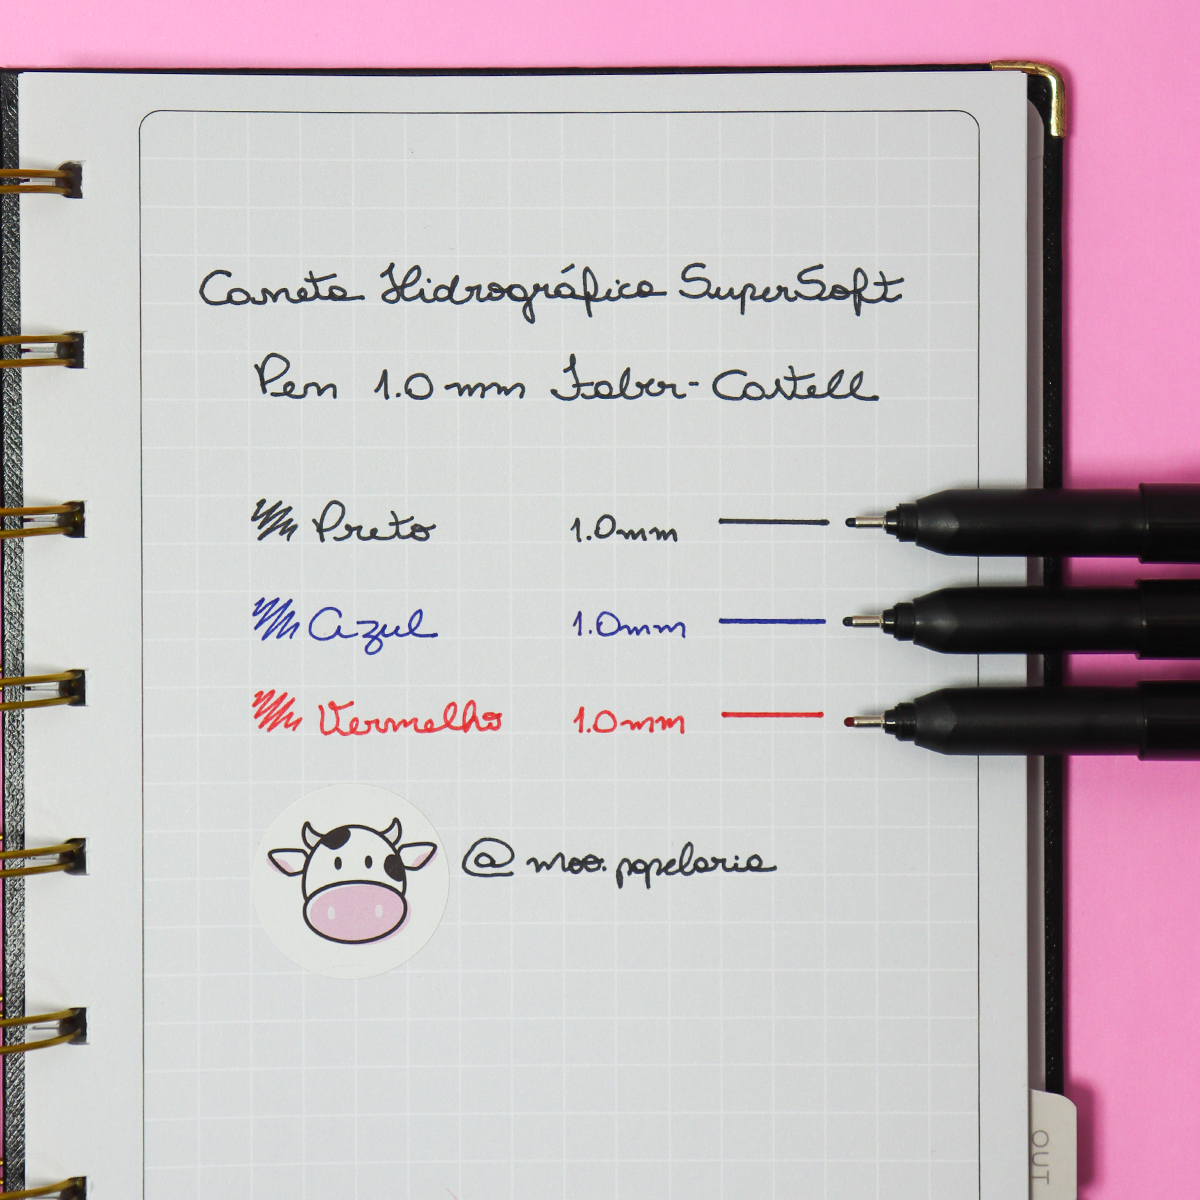 Caneta Hidrográfica SuperSoft
Pen 1.0mm Faber-Castell
Preto 1.0mm
Azul 1.0mm
Vermelho 1.0mm
@moo.papelaria
OUT